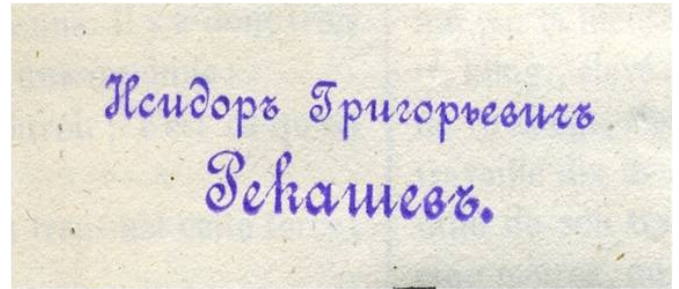 Исидоръ Григорьевичъ
Рекашевъ.